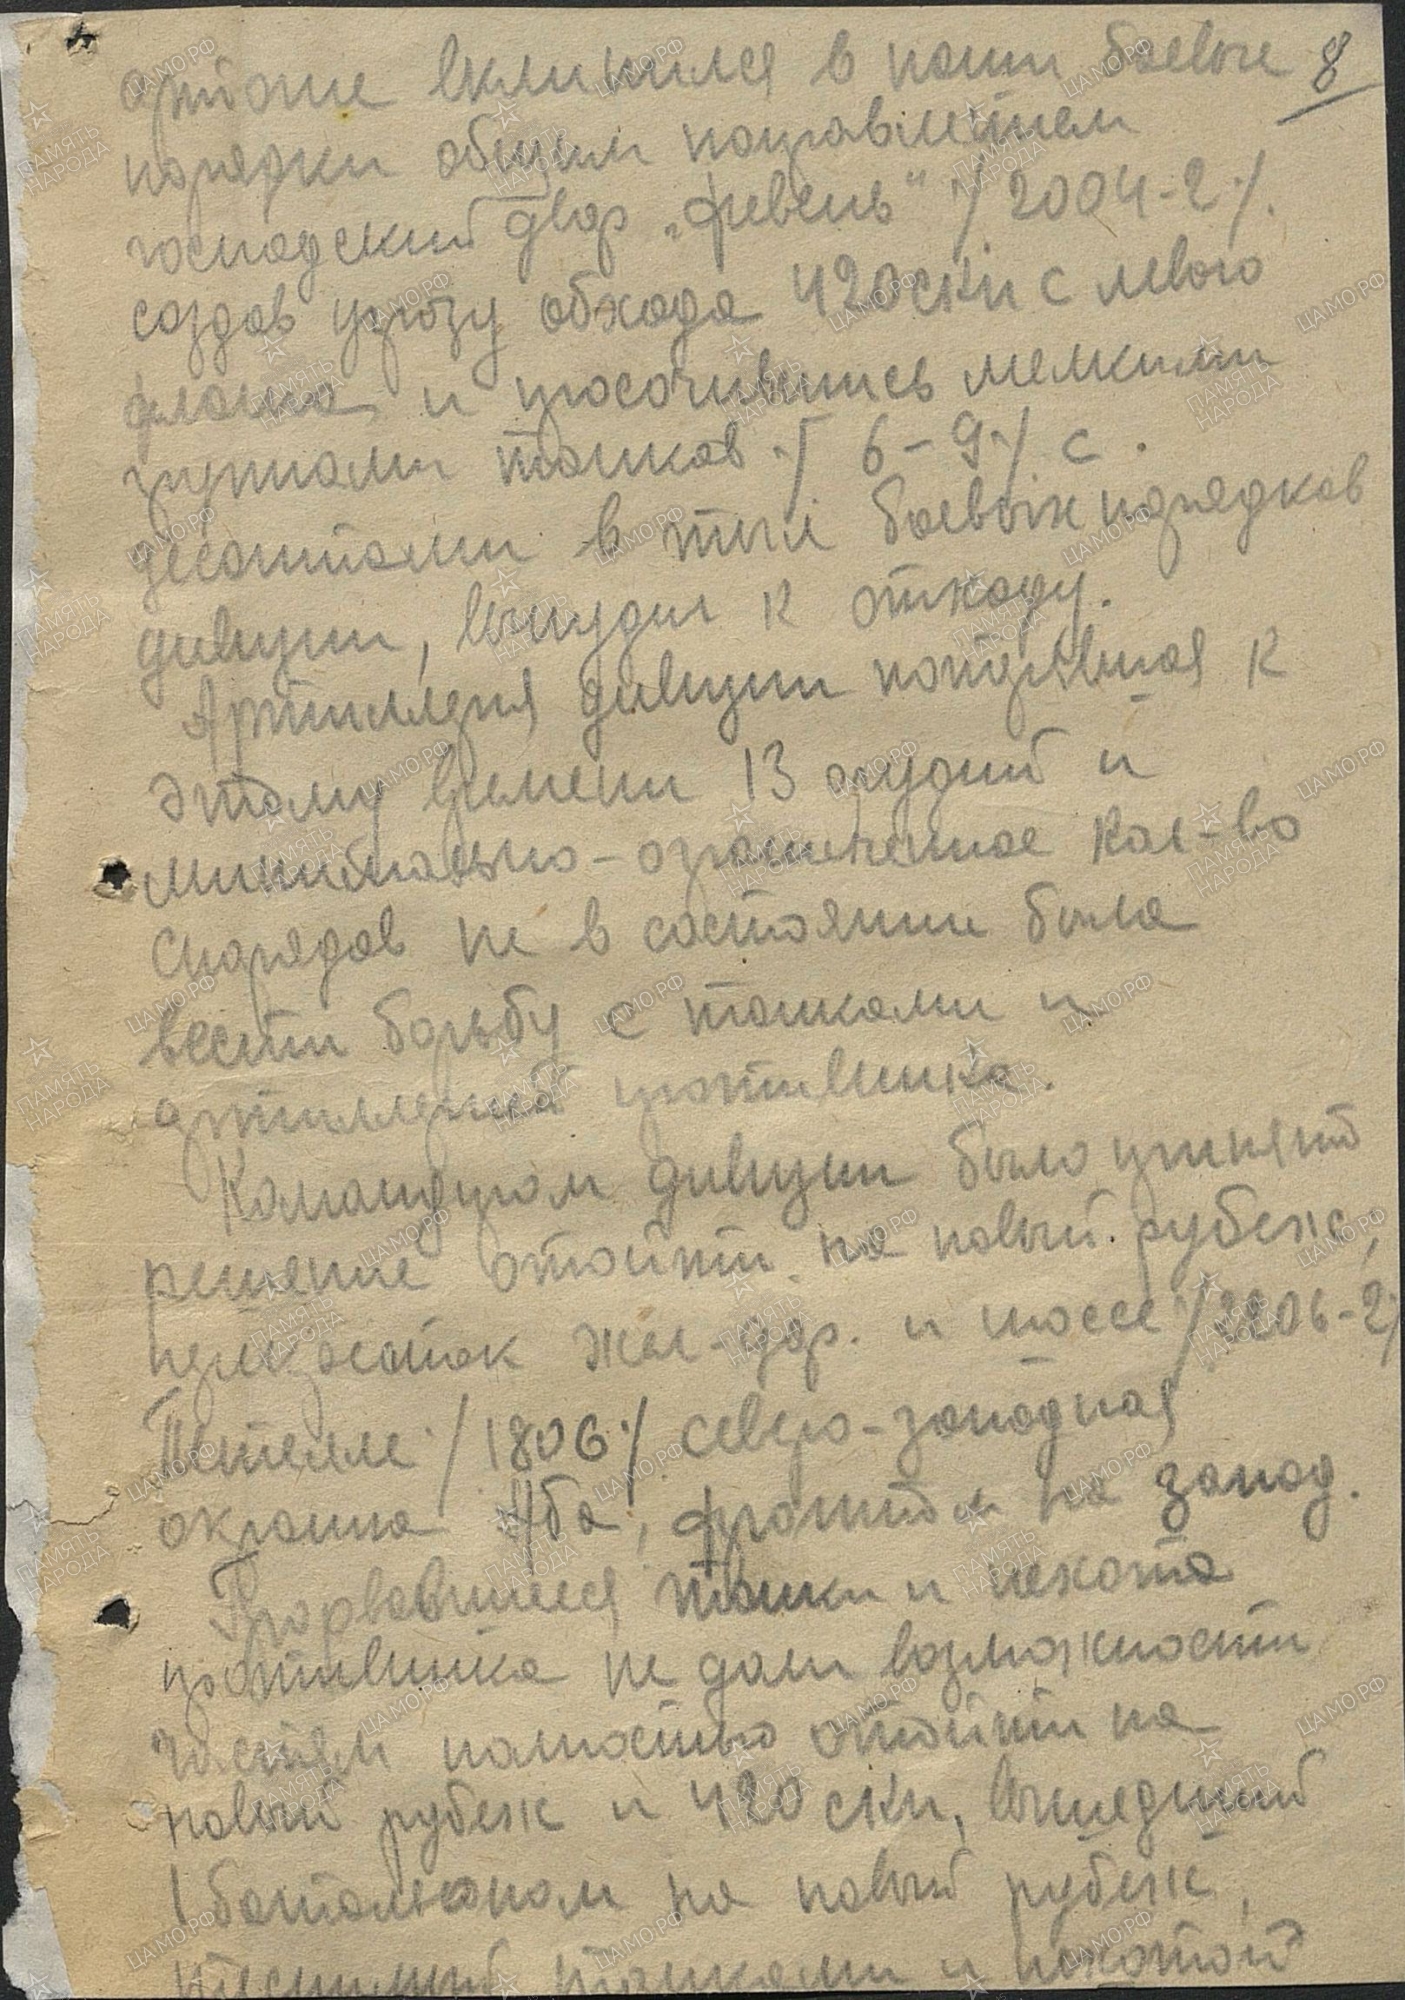 8
также вклинился в наши боевые
порядки общим направлением
господский двор „Февень“ /2004-2/.
создав угрозу обхода 420 скп с левого
фланга и просочившись мелкими
группами танков /6-9/ с
десантами в тыл боевых порядков
дивизии, вынудил к отходу.
Артиллерия дивизии потерявшая к
этому времени 13 орудий и
минимально-ограниченное кол-во
снарядов не в состоянии была
вести борьбу с танками и
артиллерией противника.
Командиром дивизии было принято
решение отойти на новый рубеж,
перекресток жел-дор. и шоссе /2206-2/
/1806/ северо-западная
окраина Аба, фронтом на запад.
Прорвавшиеся танки и пехота
противника не дали возможности
частям полностью отойти на
новый рубеж и 420 скп, вышедший
1 батальоном на новый рубеж,
теснимый танками и пехотой